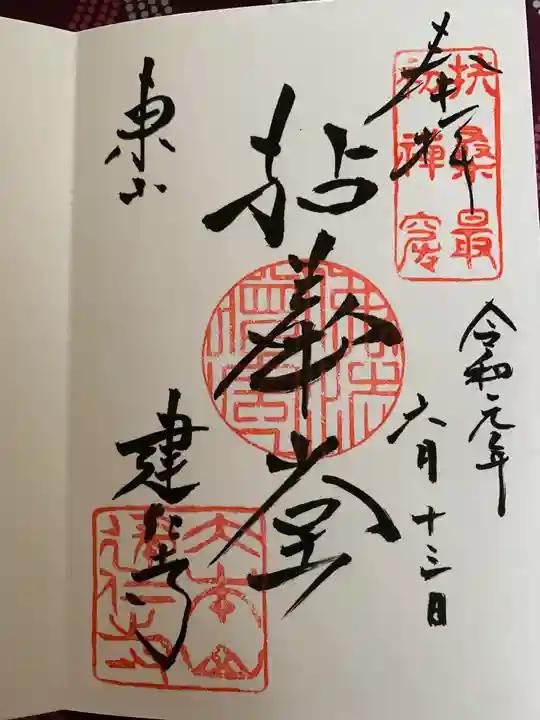 奉拝
扶桑最
初禅窟
令和元年
六月十三日
拈華堂
東山
建仁寺
大本山
建仁寺